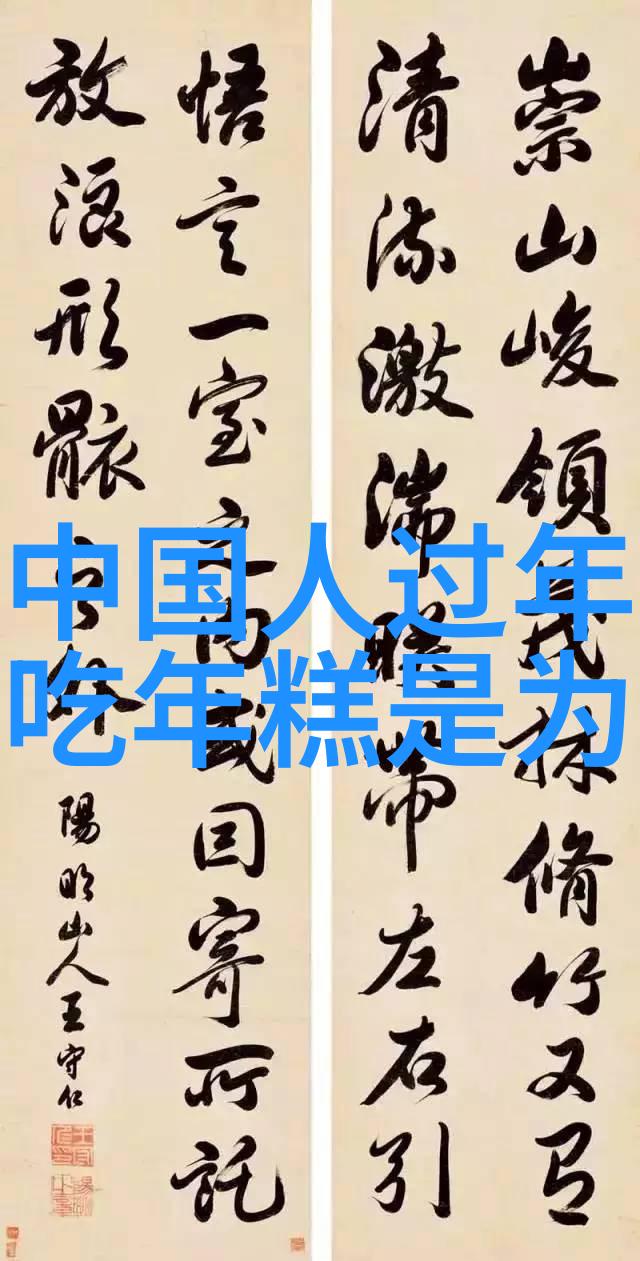 崇山峻領茂林脩竹又有
清流激湍暎帶左右引
悟言一室之内或因寄所託
放浪形骸之外
陽明山人王守仁
中国人过年
吃年糕是为